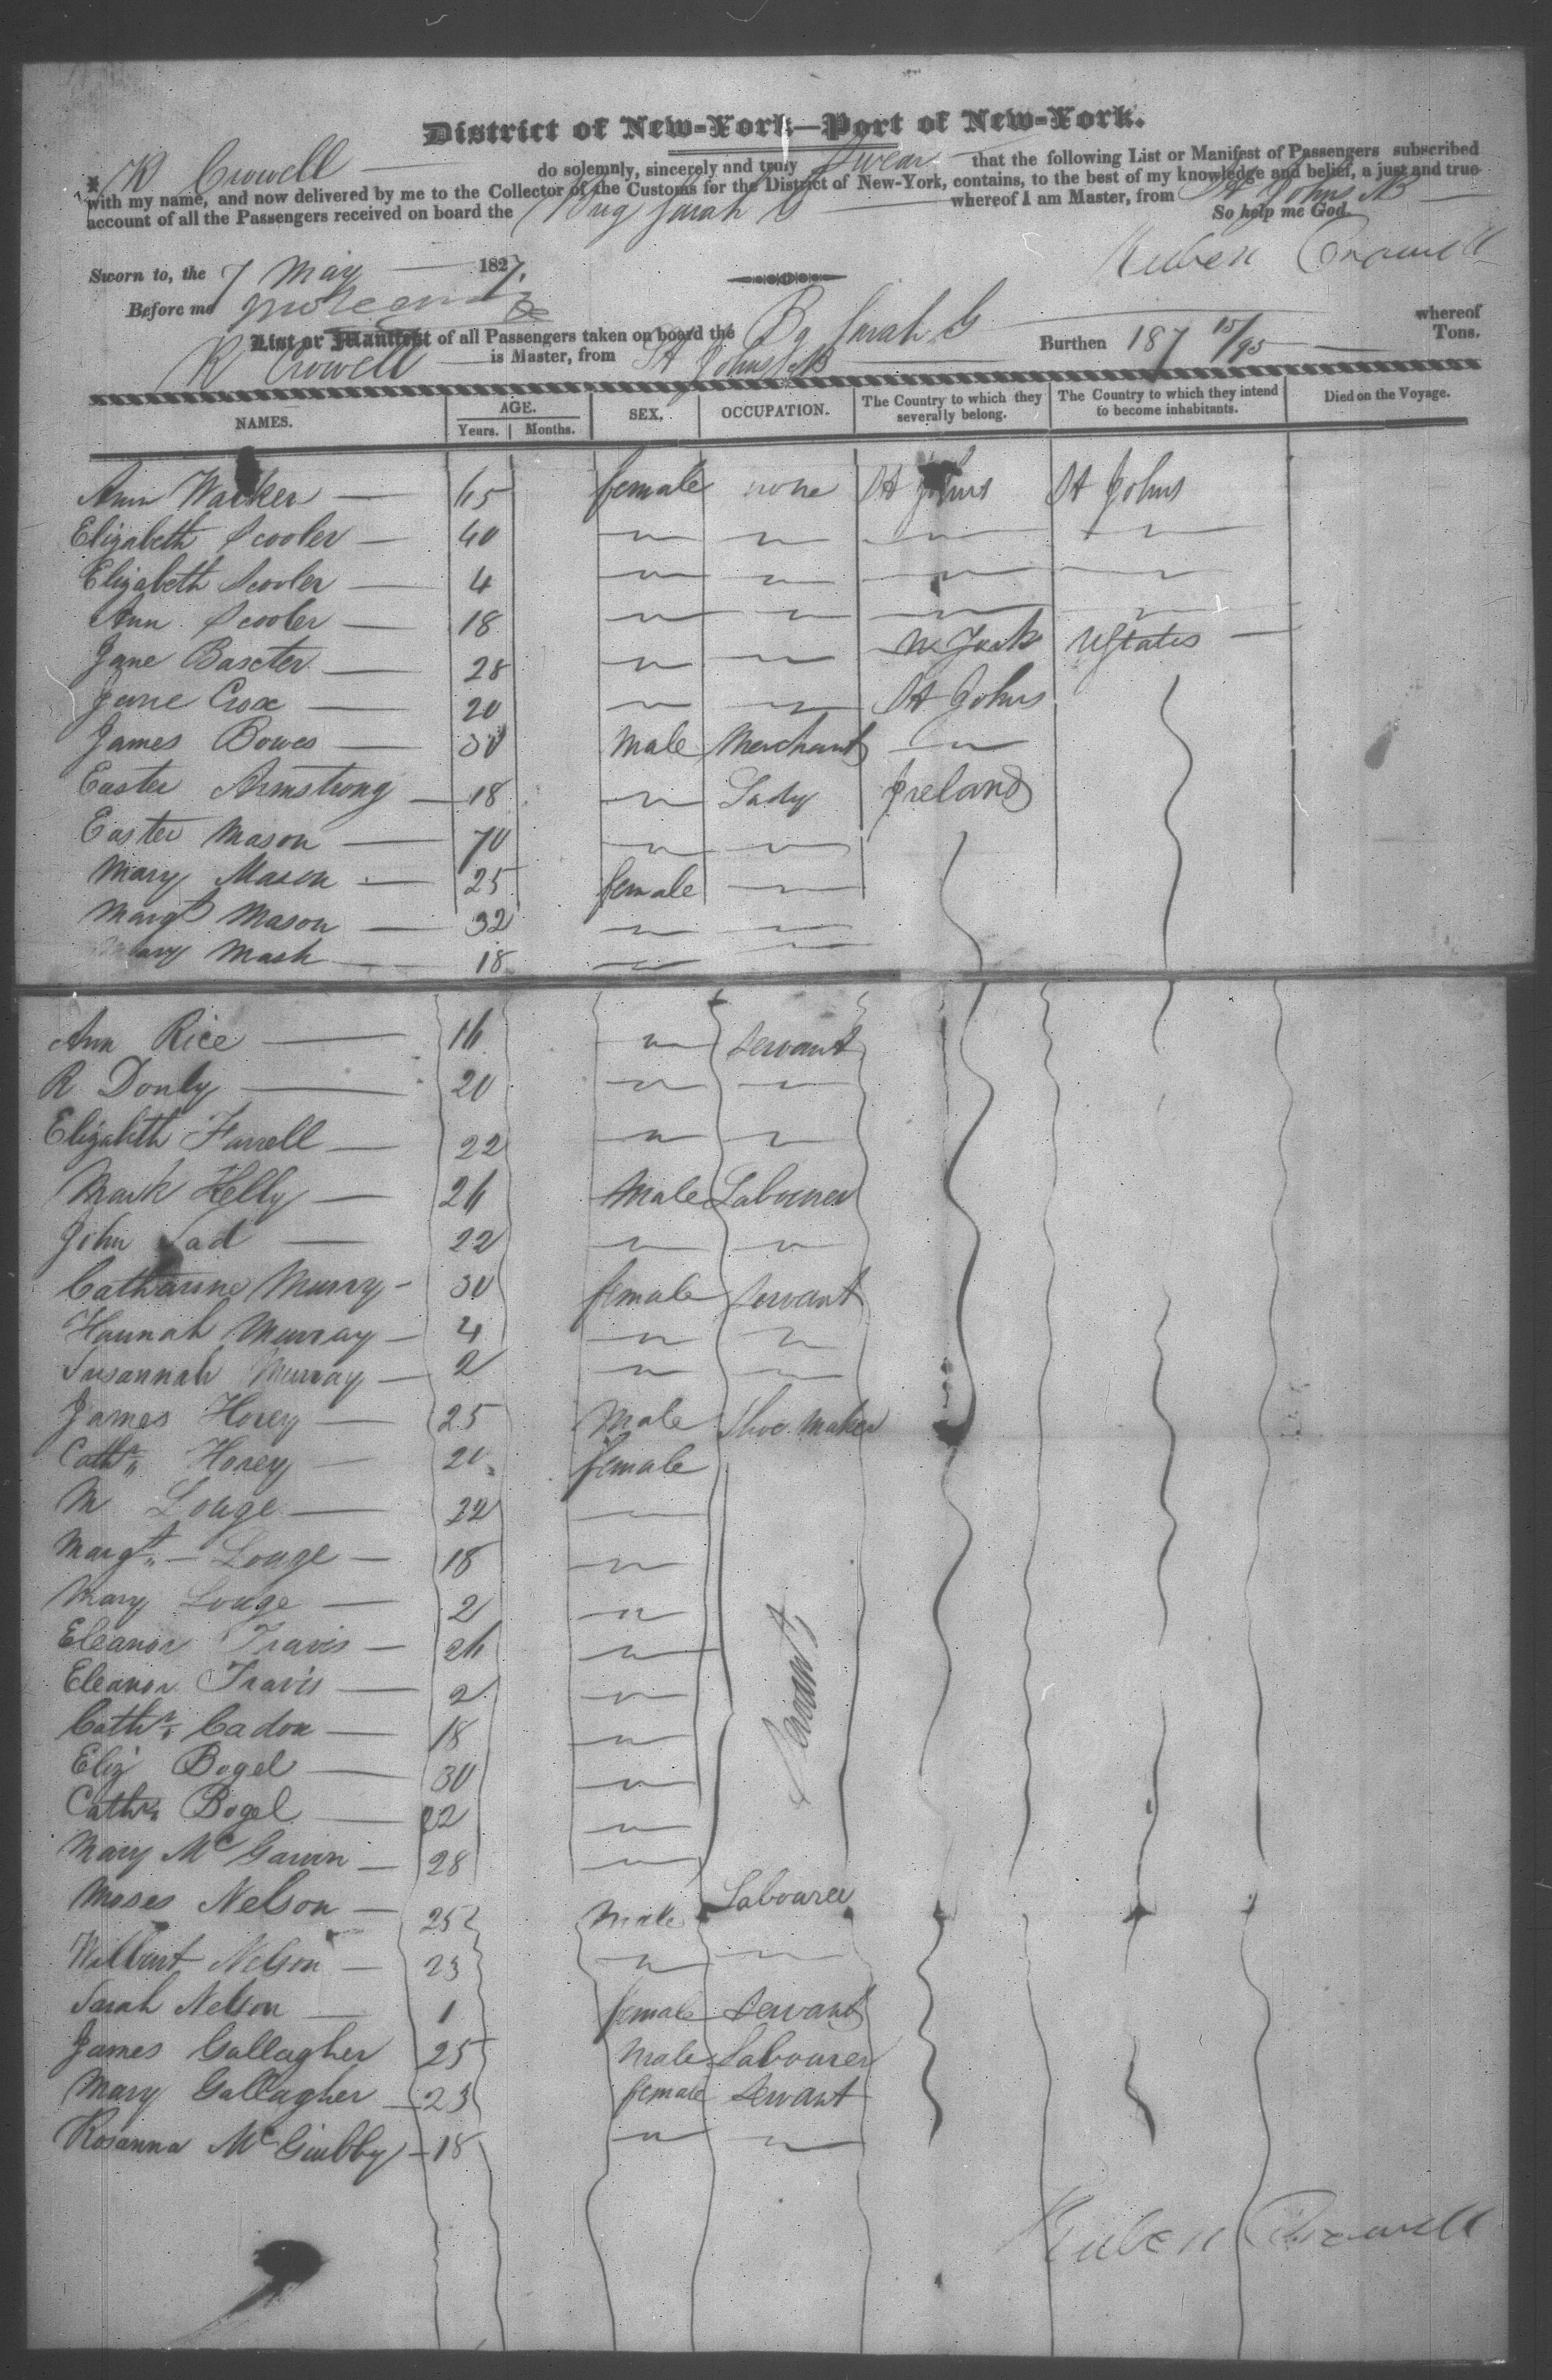 District of New-York—Port of New-York.
I, R Crowell do solemnly, sincerely and truly Swear that the following List or Manifest of Passengers subscribed
with my name, and now delivered by me to the Collector of the Customs for the District of New-York, contains, to the best of my knowledge and belief, a just and true
account of all the Passengers received on board the Brig Sarah G whereof I am Master, from St Johns NB
So help me God.
Sworn to, the 7 May 1827. Reuben Crowell
Before me
List or Manifest of all Passengers taken on board the Bg Sarah G whereof
R Crowell is Master, from St Johns NB Burthen 187 15/95 Tons.
NAMES. AGE. Years. Months. SEX. OCCUPATION. The Country to which they severally belong. The Country to which they intend to become inhabitants. Died on the Voyage.
Ann Walker — 65 female none St Johns St Johns
Elizabeth Scooler — 40 " " " "
Elizabeth Scooler — 4 " " " "
Ann Scooler — 18 " " " "
Jane Baxter — 28 " " N York UStates —
Jane Cox — 20 " " St Johns
James Bowes — 30 Male Merchant "
Easter Armstrong — 18 " Lady Ireland
Easter Mason — 70 " "
Mary Mason — 25 female "
Margt Mason — 32 " "
Mary Mash — 18 " "
Ann Rice — 16 " Servant
R Donly — 20 " "
Elizabeth Farrell — 22 " "
Mark Kelly — 26 Male Labourer
John Lad — 22 " "
Catharine Murry — 30 female Servant
Hannah Murray — 4 " "
Susannah Murray — 2 " "
James Horey — 25 Male Shoe Maker
Cathn Horey — 20 female
M Louge — 22 "
Margt — Louge — 18 "
Mary Louge — 2 "
Eleanor Travis — 26 " Servants
Eleanor Travis — 2 "
Cathn Cadon — 18 "
Eliz Bogel — 30 "
Cathn Bogel — 22 "
Mary Mc Garvn — 28 "
Moses Nelson — 25 Male Labourer
Nelson — 23 " "
Sarah Nelson — 1 female Servant
James Gallagher 25 Male Labourer
Mary Gallagher — 23 female Servant
Rosanna Mc Giubby — 18 " "
Reuben Crowell